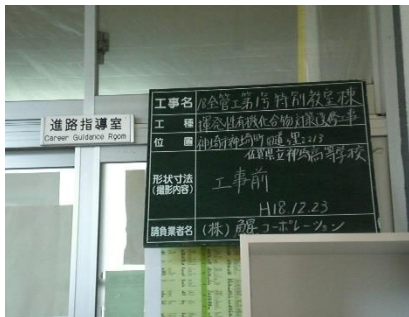 進路指導室
Career Guidance Room
工事名 18全管工第1号 特別教室棟
工種 揮発性有機化合物対策改修工事
位置 神埼市神埼町
佐賀県立神埼高等学校
形状寸法
(撮影内容)
工事前
H18.12.23
請負業者名 (株) コーポレーション